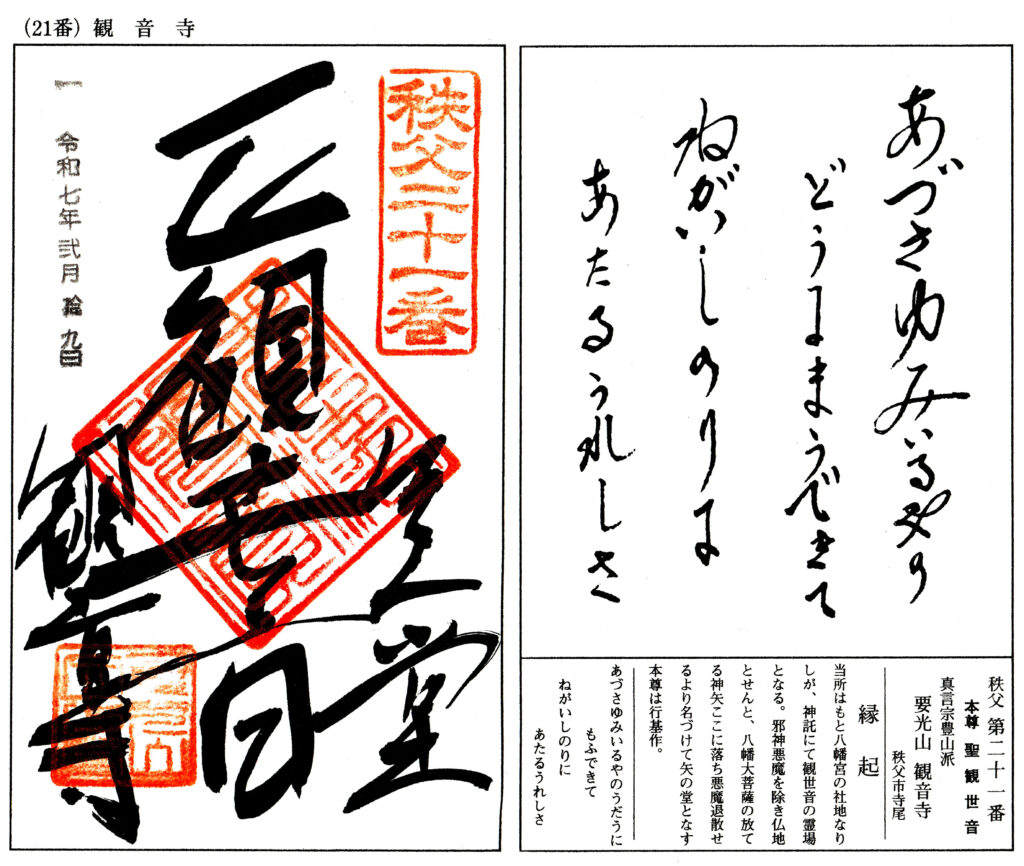 (21番) 観音寺
秩父二十一番
令和七年弐月拾九日
堂
観音寺
あづさゆみいる矢の
どうにまうできて
ねがいしのりに
あたるうれしさ
秩父 第二十一番
本尊 聖観世音
真言宗豊山派
要光山 観音寺
秩父市寺尾
縁起
当所はもと八幡宮の社地なり
しが、神託にて観世音の霊場
となる。邪神悪魔を除き仏地
とせんと、八幡大菩薩の放て
る神矢ここに落ち悪魔退散せ
るより名づけて矢の堂となす
本尊は行基作。
あづさゆみいるやのうだうに
もふできて
ねがいしのりに
あたるうれしさ